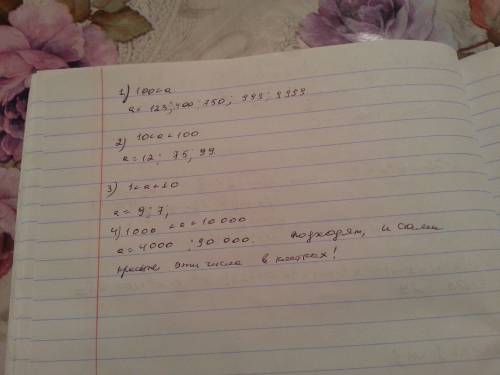 1) 100<a
a = 123; 400; 750; 999; 9999
2) 10<a<100
a = 12; 75; 99
3) 1<a<10
a = 9; 7;
4) 1000 <a<10 000
a = 4000 ; 90 000. подходят, и сами
эти числа в клетках!